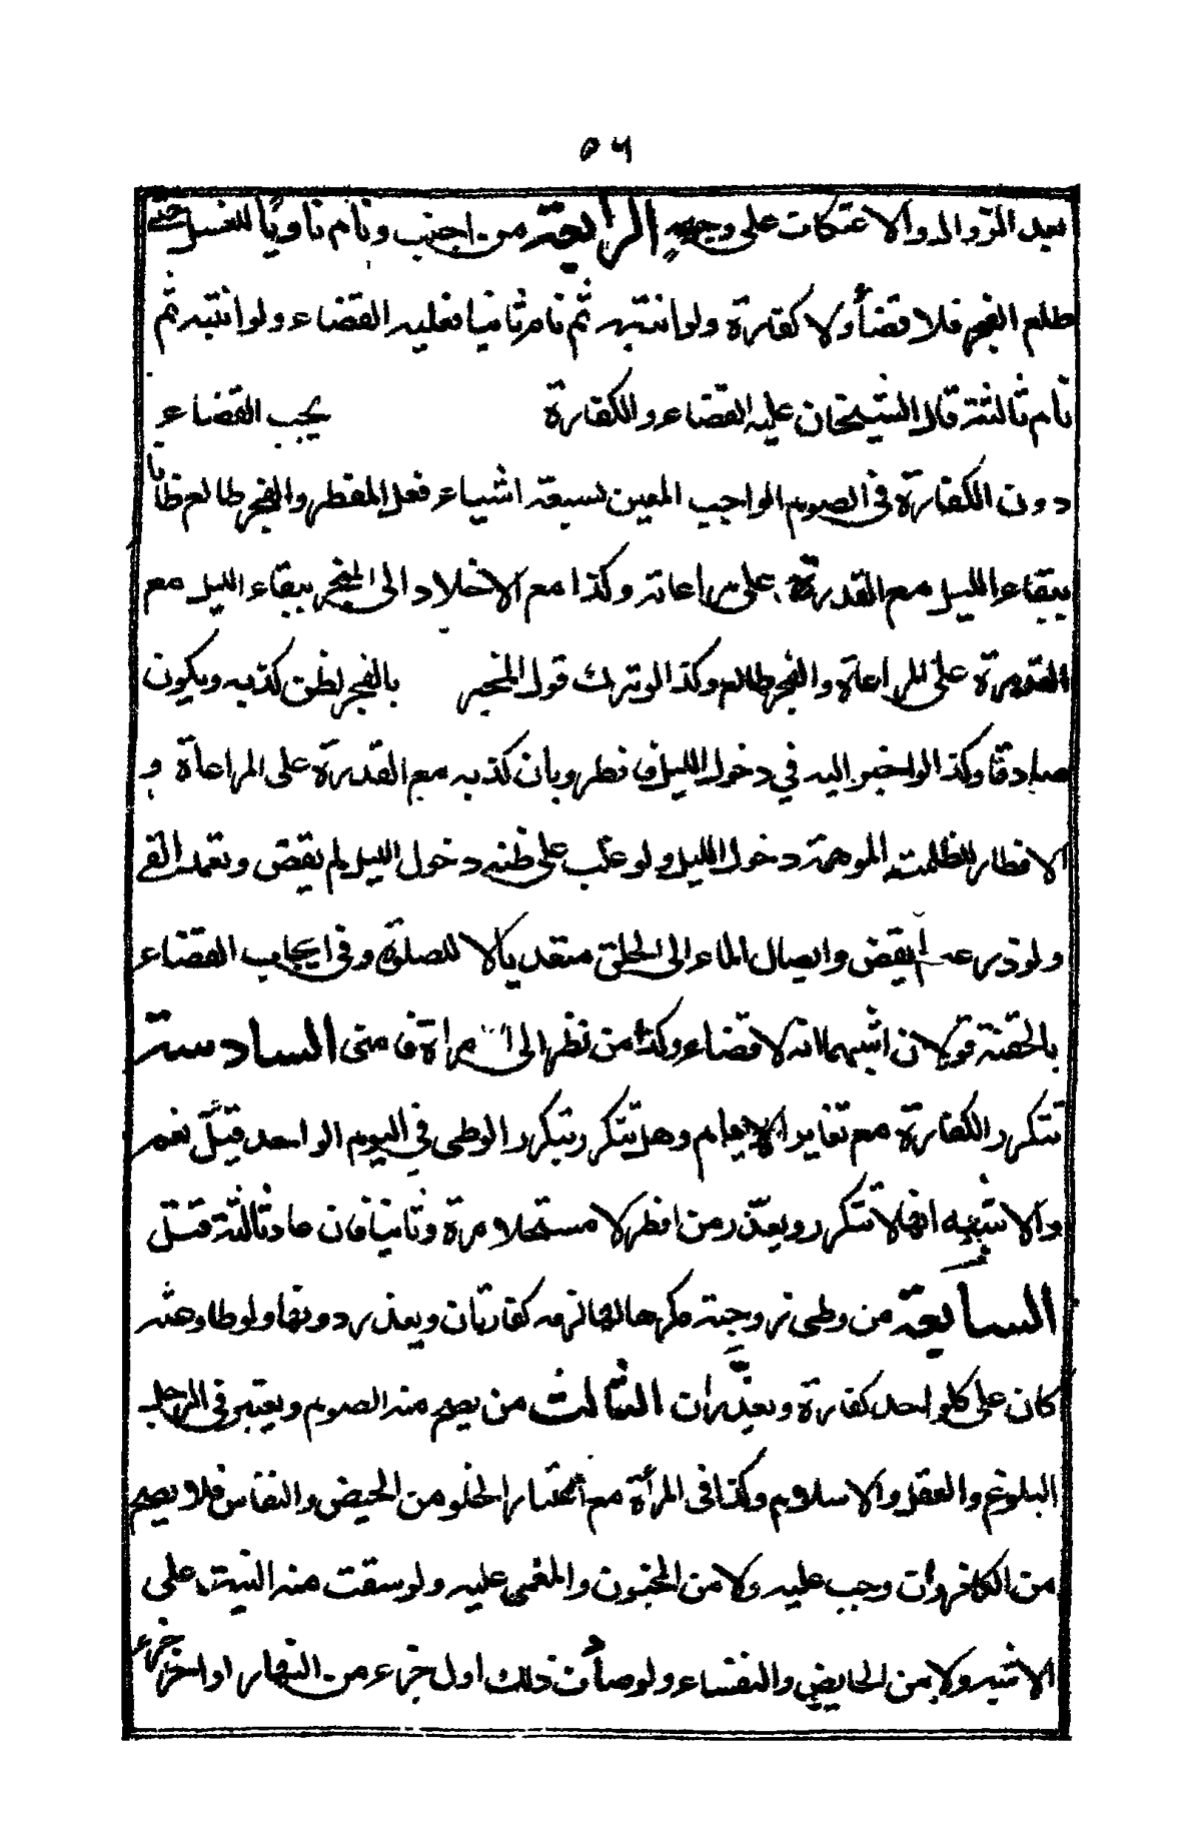 ٥٦
بعد الزوال والاعتكاف على وجه الرابعة من اجنب ونام ناويا للغسل حتى
طلع الفجر فلا قضأ ولا كفارة ولو انتبه ثم نام ثانيا فعليه القضاء ولو انتبه ثم
نام ثالثة قال الشيخان عليه القضاء والكفارة يجب القضاء
دون الكفارة في الصوم الواجب المعين لسبعة اشياء فعل المفطر والفجر طالع ظانا
ببقاء الليل مع القدرة على مراعاته وكذا مع الاخلاد الى المخبر ببقاء الليل مع
القدرة على المراعاة والفجر طالع وكذا لو ترك قول المخبر بالفجر لظن كذبه ويكون
صادقا وكذا لو اخبر اليه في دخول الليل فافطر وبان كذبه مع القدرة على المراعاة و
الافطار للظلمة الموهمة دخول الليل ولو غلب على ظنه دخول الليل لم يقض وتعمد القى
ولو ذرعه لم يقض وايصال الماء الى الحلق متعديا لا للصلوة وفي ايجاب القضاء
بالحقنة قولان اشبهما انه لا قضاء وكذا من نظر الى امراة فامنى السادسة
تتكرر الكفارة مع تغاير الايام وهل تتكرر بتكرر الوطى في اليوم الواحد قيل نعم
والاشبه انها لا تتكرر ويعذر من افطر لا مستحلا مرة وثانيا فان عاد ثالثة قتل
السابعة من وطى زوجته مكرها لها لزمه كفارتان ويعذر دونها ولو طاوعته
كان على كل واحد كفارة ويعذران الثالث من يصح منه الصوم ويعتبر في الرجل
البلوغ والعقل والاسلام وكذا في المرأة مع اعتبار الخلو من الحيض والنفاس فلا يصح
من الكافر وان وجب عليه ولا من المجنون والمغمى عليه ولو سبقت منه النية على
الاشبه ولا من الحايض والنفساء ولو صادف ذلك اول جزء من النهار او اخر جزء